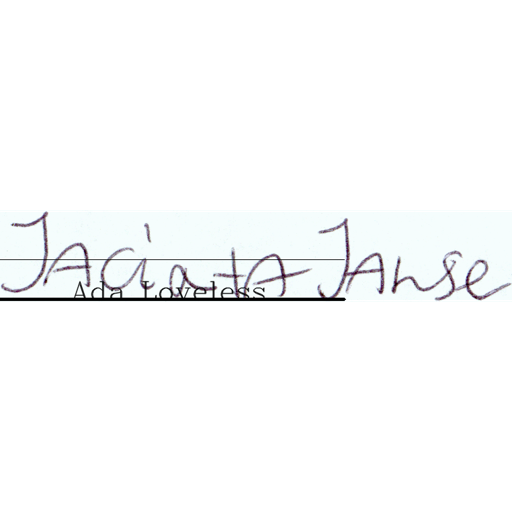 Jacinta Janse
Ada Loveless